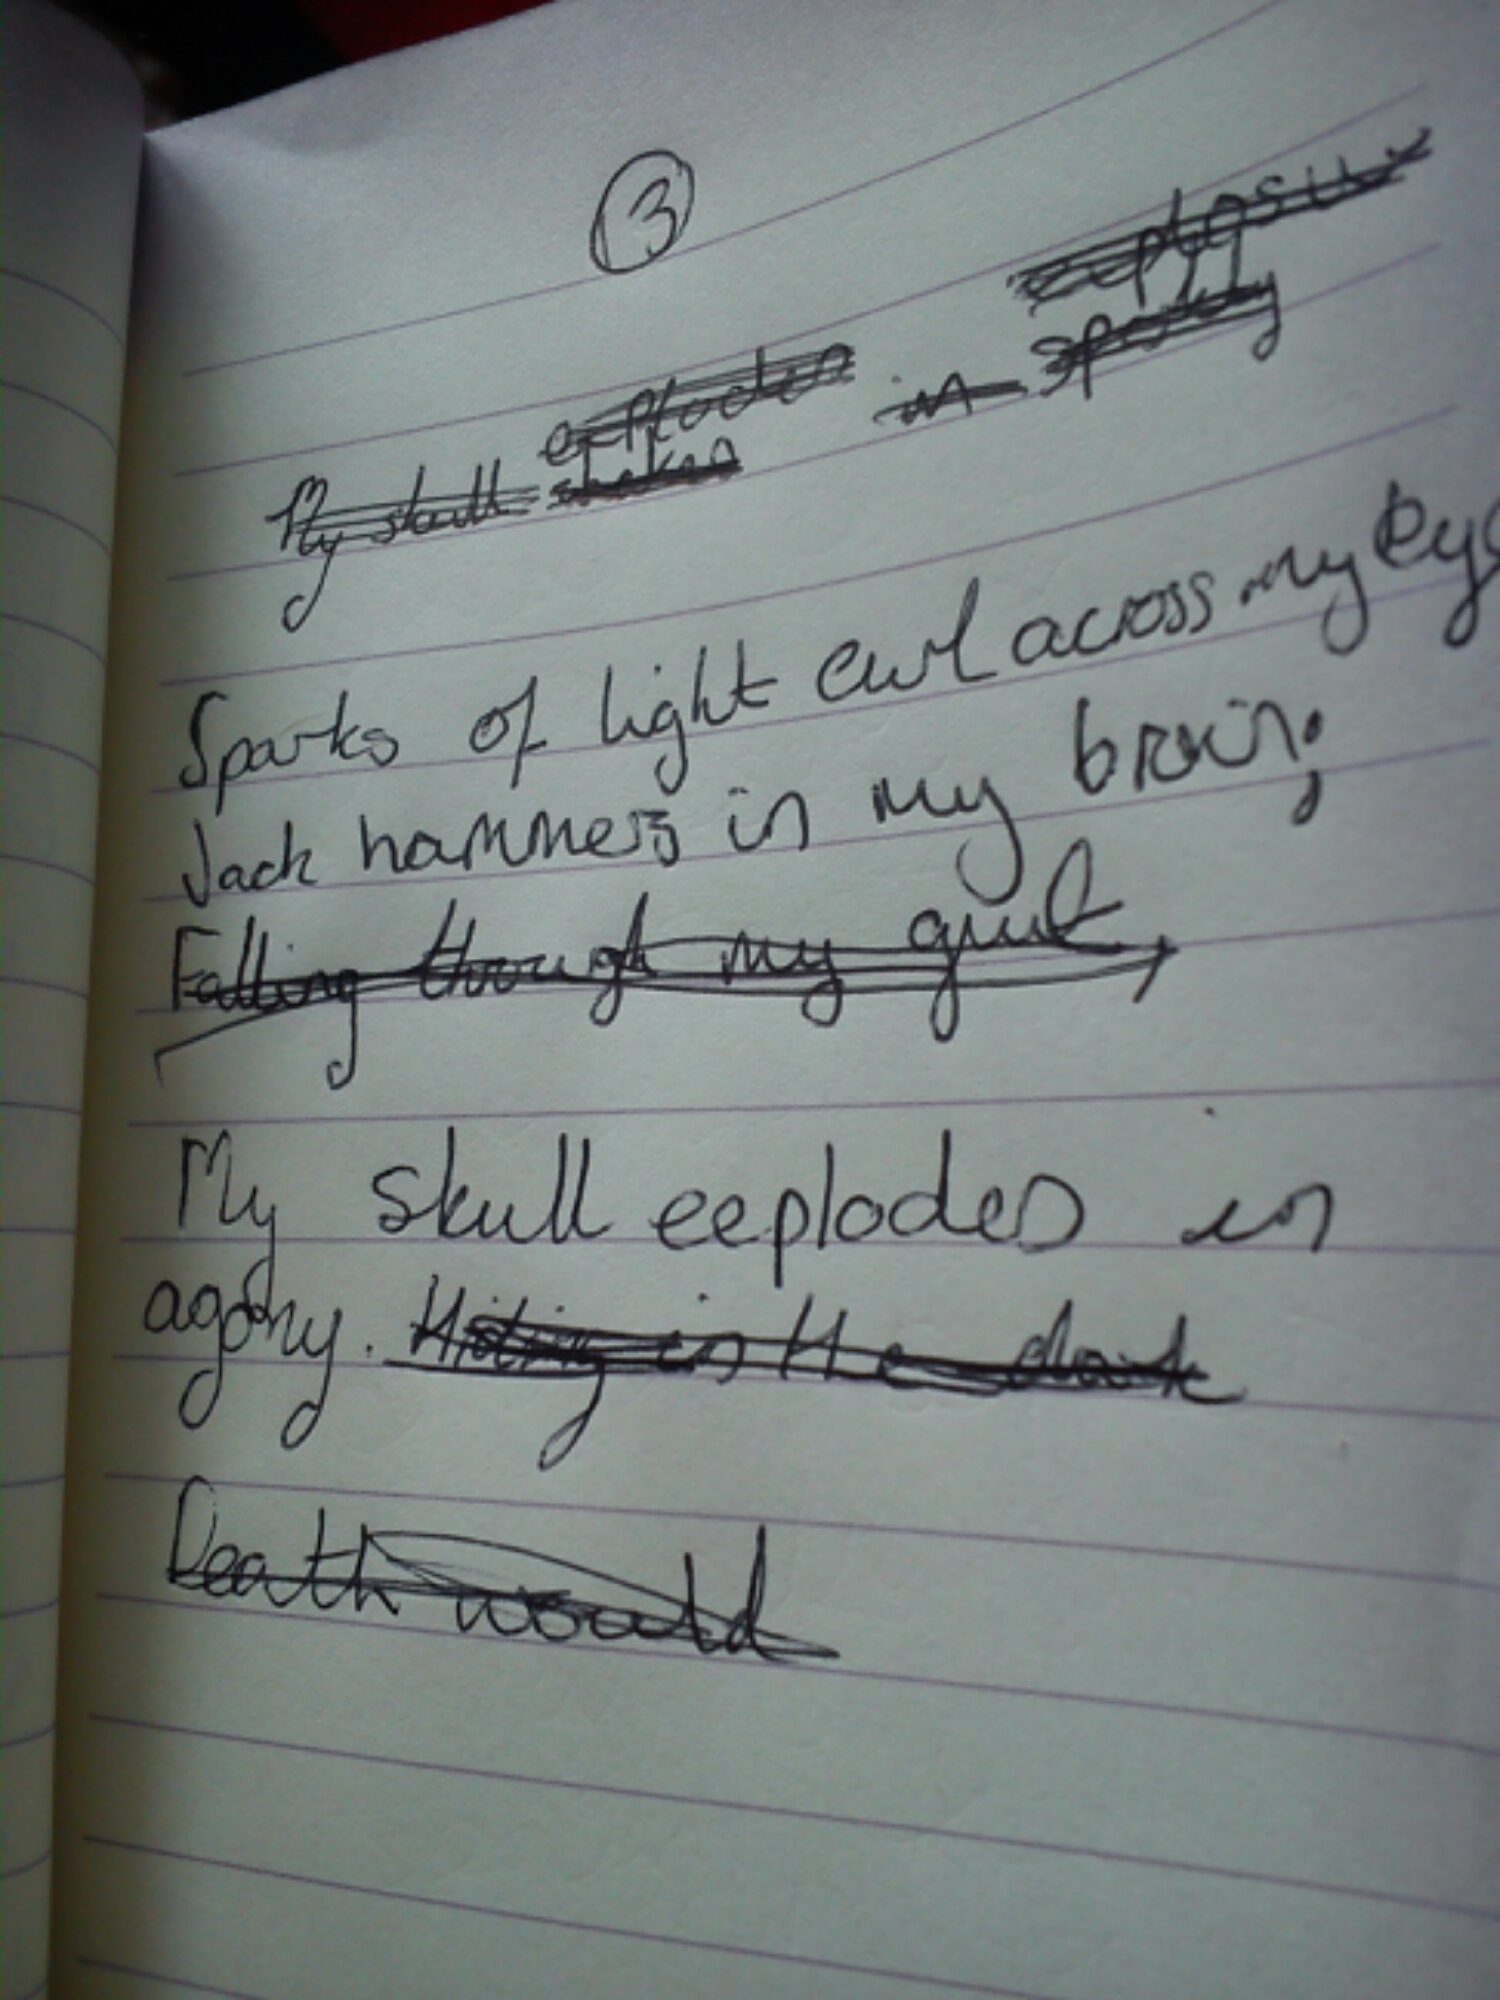 3
explosive
explodes in sparky
My skull shakes
Sparks of light curl across my eye
Jack hammers in my brain;
Falling through my
My skull eeplodes in
agony. Hiding in the dark
Death would